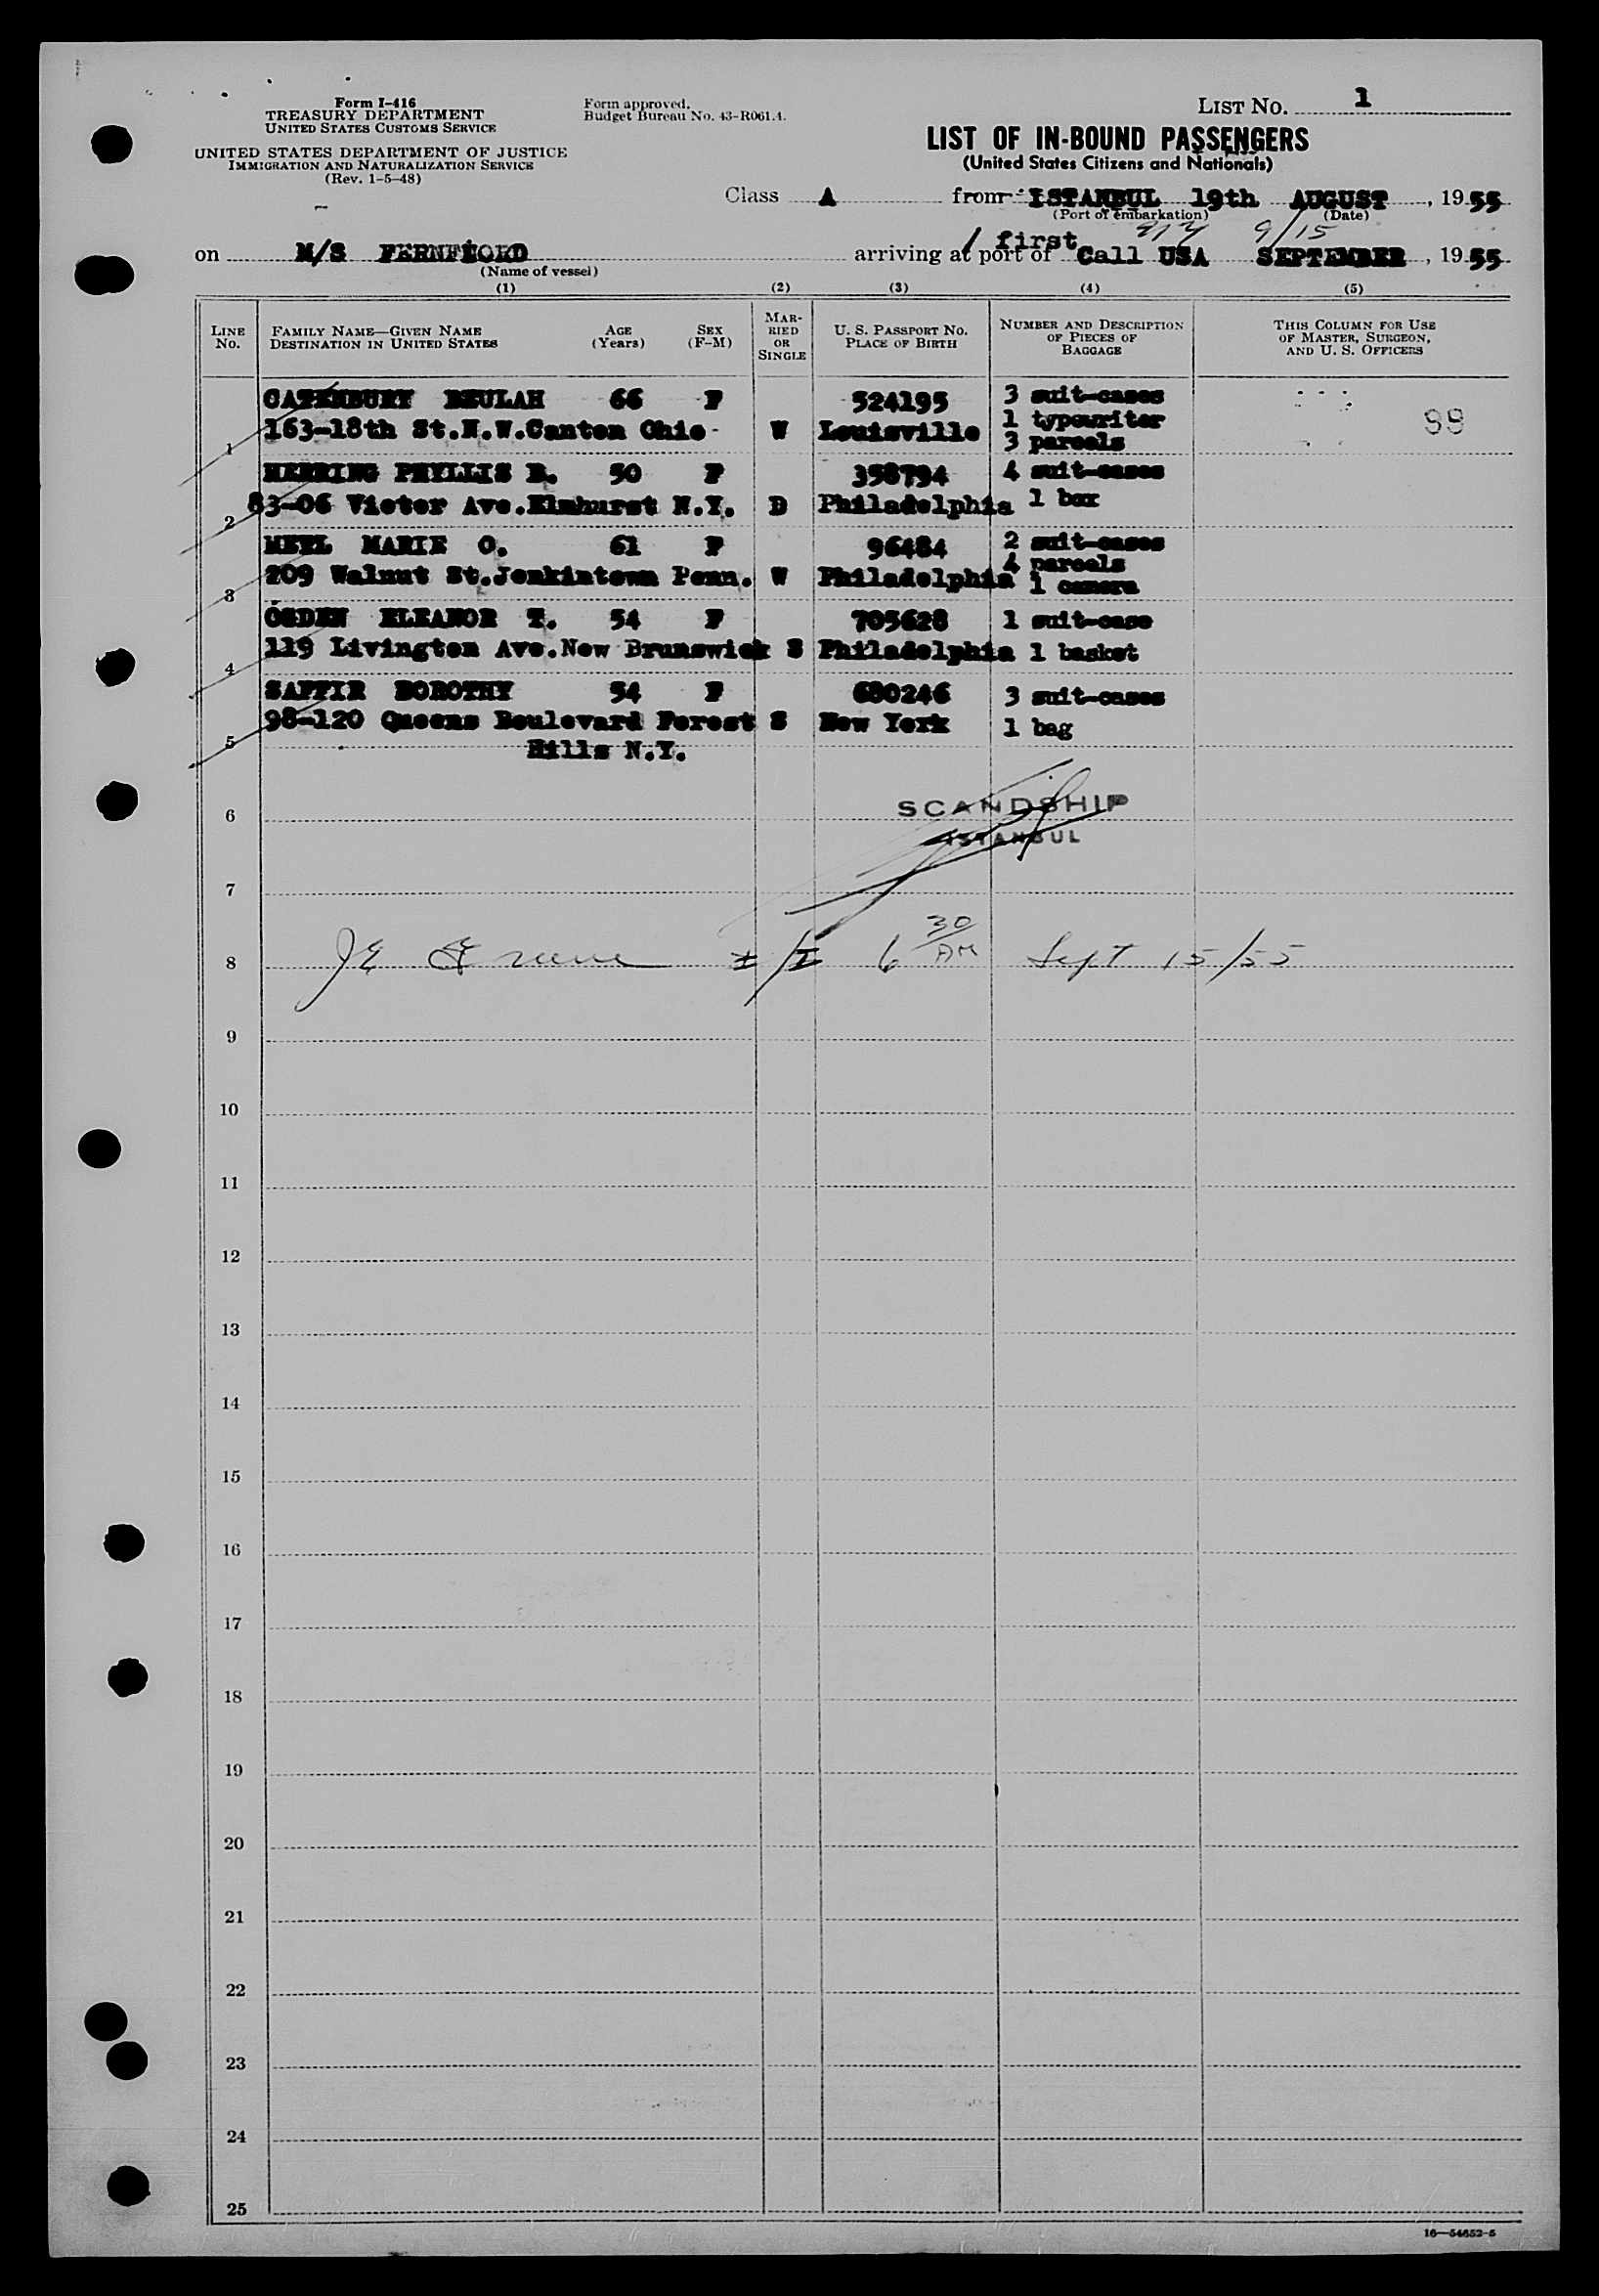 Form I-416
TREASURY DEPARTMENT
UNITED STATES CUSTOMS SERVICE
UNITED STATES DEPARTMENT OF JUSTICE
IMMIGRATION AND NATURALIZATION SERVICE
(Rev. 1-5-48)
Form approved.
Budget Bureau No. 43-R061.4.
LIST NO. 1
LIST OF IN-BOUND PASSENGERS
(United States Citizens and Nationals)
Class A from ISTANBUL 19th AUGUST, 1955
(Port of embarkation) (Date)
9/15
on M/S FERNFIORD arriving at port of first Call USA SEPTEMBER, 1955
(Name of vessel)
(1) (2) (3) (4) (5)
LINE NO.
FAMILY NAME—GIVEN NAME
DESTINATION IN UNITED STATES
AGE (Years)
SEX (F-M)
MARRIED OR SINGLE
U. S. PASSPORT NO.
PLACE OF BIRTH
NUMBER AND DESCRIPTION OF PIECES OF BAGGAGE
THIS COLUMN FOR USE OF MASTER, SURGEON, AND U. S. OFFICERS
BEULAH 66 F 524195 3 suit-cases
1 163-18th St.N.W.Canton Ohio W Louisville 1 typewriter
3 parcels
88
HERRING PHYLLIS B. 50 F 358794 4 suit-cases
2 83-06 Vietor Ave.Elmhurst N.Y. D Philadelphia 1 box
METL MARIE O. 61 F 96484 2 suit-cases
4 parcels
3 209 Walnut St.Jenkintown Penn. W Philadelphia 1 camera
OGDEN ELEANOR T. 54 F 705628 1 suit-case
4 119 Livington Ave.New Brunswick S Philadelphia 1 basket
SAFFIR DOROTHY 54 F 680246 3 suit-cases
5 98-120 Queens Boulevard Forest S New York 1 bag
Hills N.Y.
6
SCANDSHIP
ISTANBUL
7
8 JE Greene I/I 6 30 AM Sept 15/55
9
10
11
12
13
14
15
16
17
18
19
20
21
22
23
24
25
16—54652-5